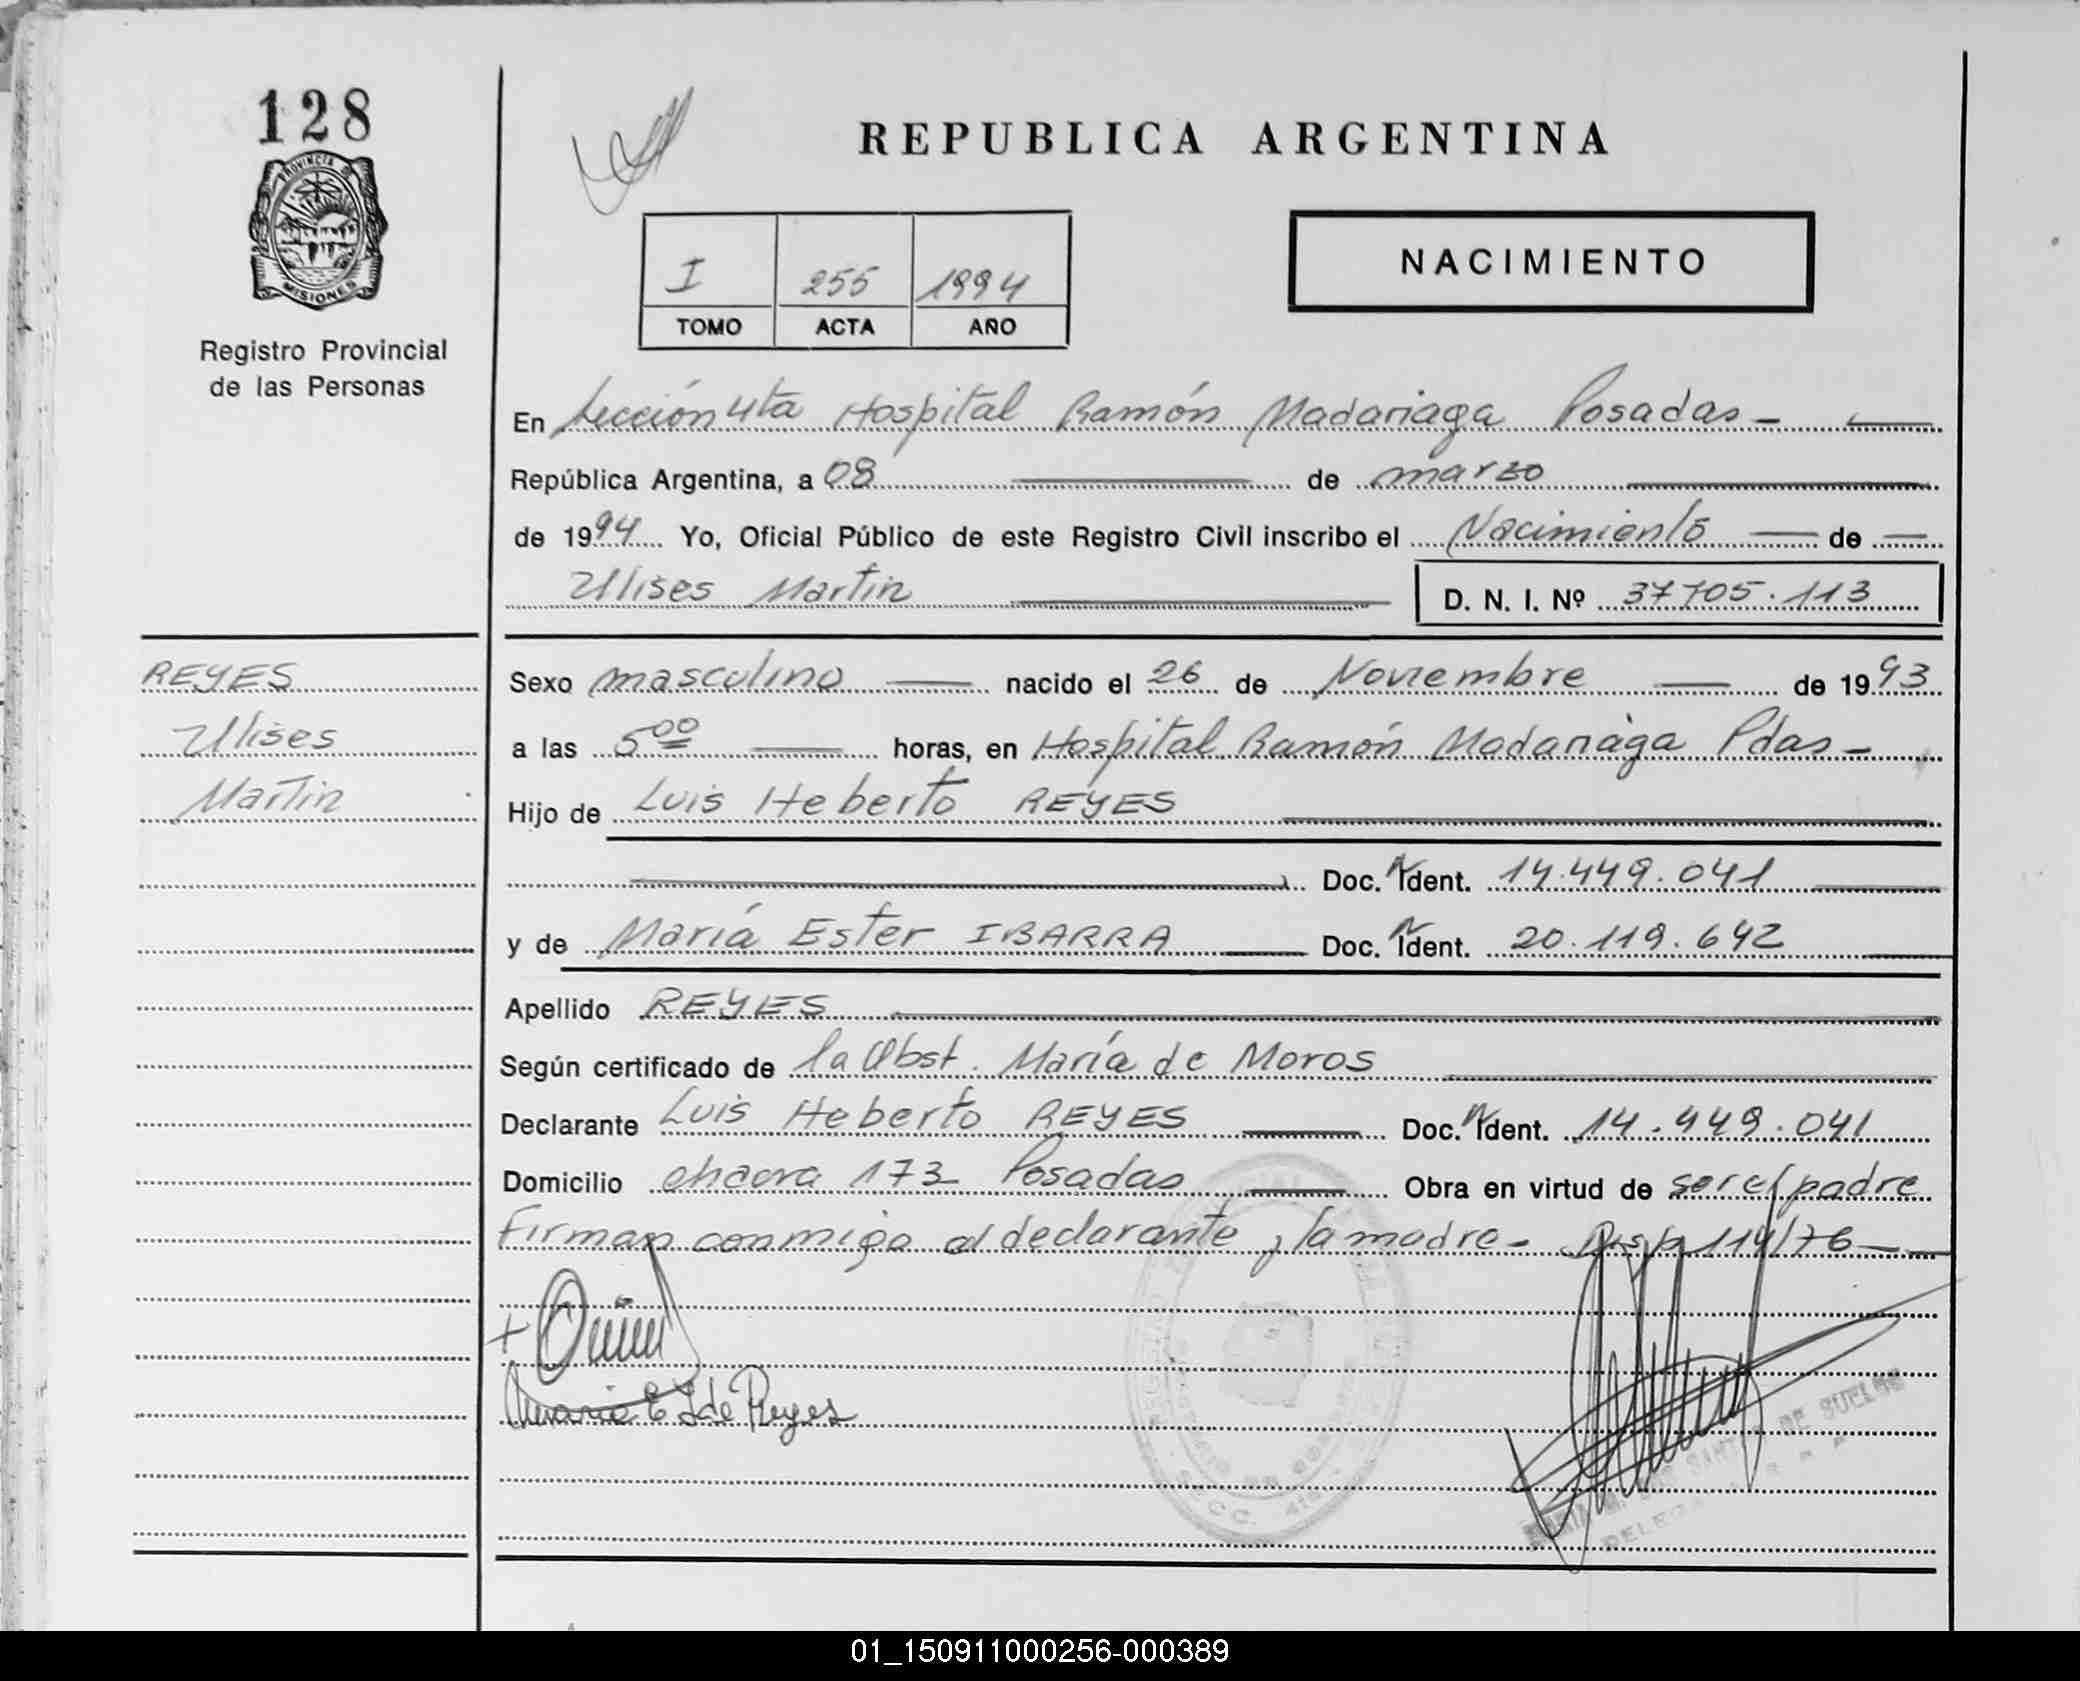 128
PROVINCIA DE
MISIONES
Registro Provincial
de las Personas
REPUBLICA ARGENTINA
NACIMIENTO
I 255 1994
TOMO ACTA AÑO
En Sección 4ta Hospital Ramón Madariaga Posadas -
República Argentina, a 08 de marzo
de 1994 Yo, Oficial Público de este Registro Civil inscribo el Nacimiento de
Ulises Martin D. N. I. Nº 37705.113
REYES
Ulises
Martin
Sexo masculino nacido el 26 de Noviembre de 1993
a las 5 00 horas, en Hospital Ramón Madariaga Pdas -
Hijo de Luis Heberto REYES
Doc. Ident. 14.449.041
y de María Ester IBARRA Doc. Ident. 20.119.642
Apellido REYES
Según certificado de la Obst. María de Moros
Declarante Luis Heberto REYES Doc. Ident. 14.449.041
Domicilio chacra 173 Posadas Obra en virtud de ser el padre
Firman conmigo el declarante y la madre - Disp 114/76
Maria E I de Reyes
SECC. 4ta
DE SUCLAS
01_150911000256-000389